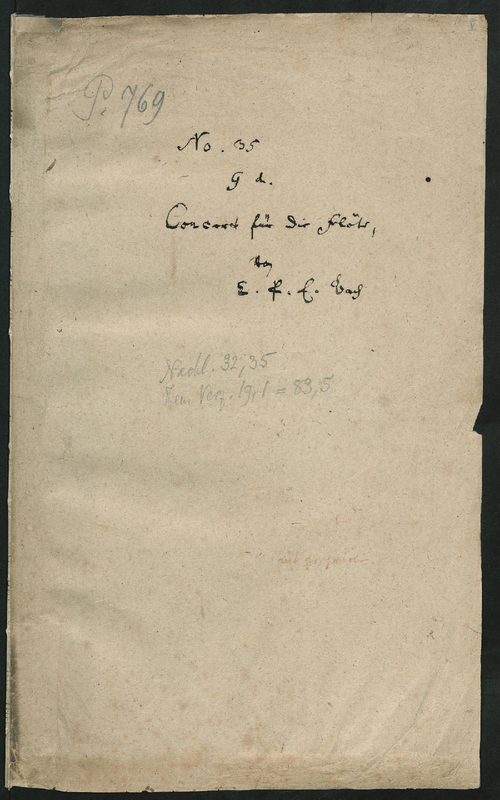 P. 769
No. 35
G d.
Concert für die Flöte,
von
C. P. E. Bach
Nachl. 32, 35
Them. Verz. 19, 1 = 83, 5